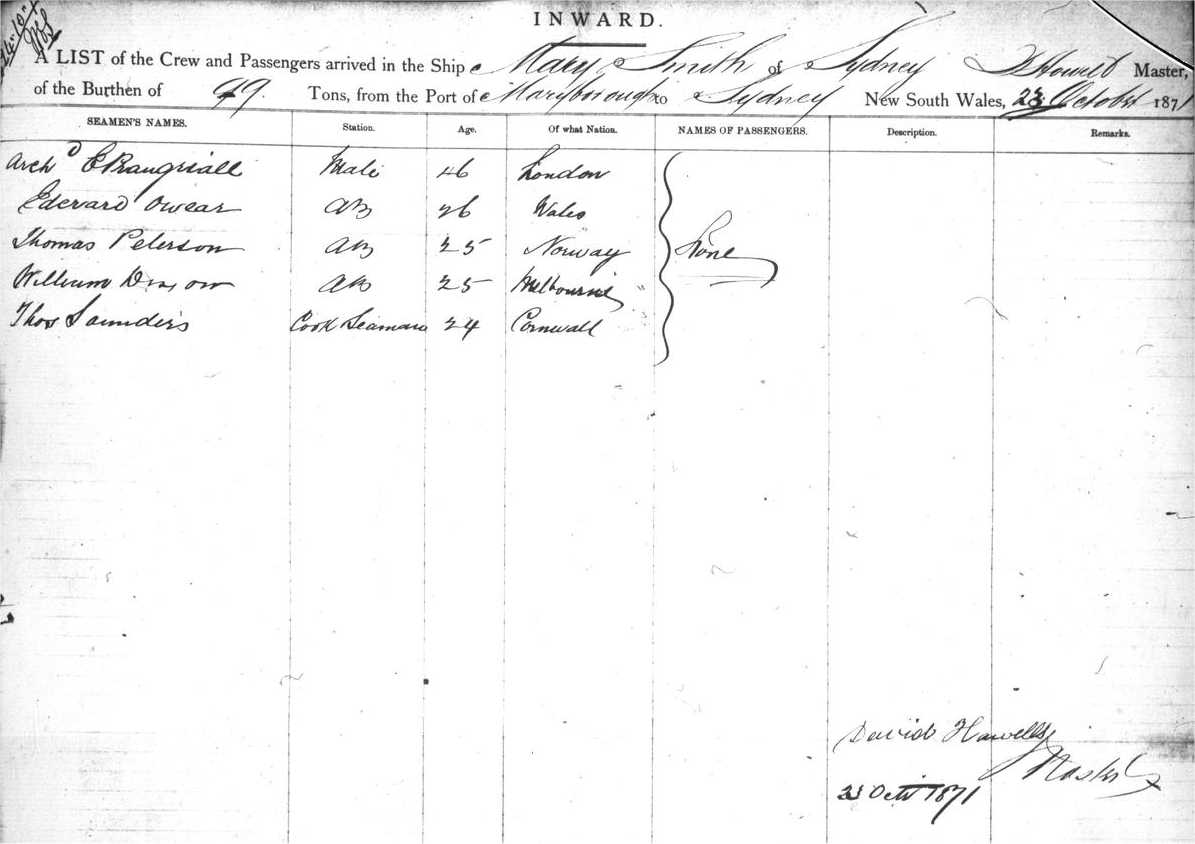 INWARD.
A LIST of the Crew and Passengers arrived in the Ship Mary Smith of Sydney D Howell Master,
of the Burthen of 99. Tons, from the Port of Maryborough to Sydney New South Wales, 23 October 1871
SEAMEN'S NAMES. Station. Age. Of what Nation. NAMES OF PASSENGERS. Description. Remarks.
Archd Mate 46 London
Edward Owear AB 26 Wales
Thomas Peterson AB 25 Norway None
William AB 25 Melbourne
Thos Saunders Cook Seaman 24 Cornwall
David Howells
Master
23 Octr 1871